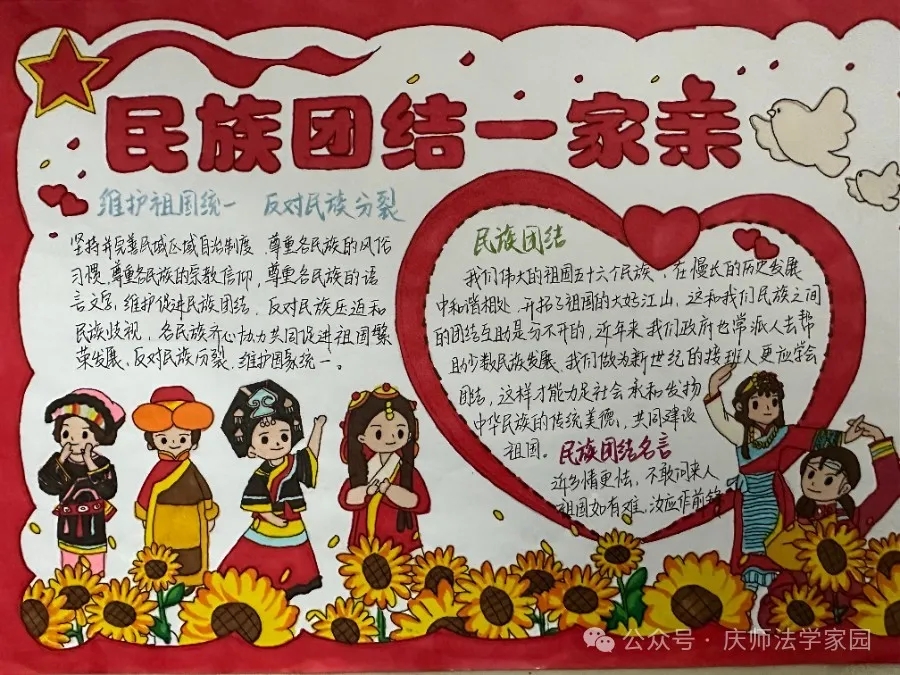 民族团结一家亲
维护祖国统一 反对民族分裂
坚持并完善民域区域自治制度,尊重各民族的风俗
习惯,尊重各民族的宗教信仰,尊重各民族的语
言文字,维护促进民族团结,反对民族压迫和
民族歧视,各民族齐心协力共同促进祖国繁
荣发展,反对民族分裂,维护国家统一。
民族团结
我们伟大的祖国五十六个民族,在慢长的历史发展
中和谐相处,开拓了祖国的大好江山,这和我们民族之间
的团结互助是分不开的,近年来我们政府也常派人去帮
助少数民族发展,我们做为新世纪的接班人更应学会
团结,这样才能立足社会承和发扬
中华民族的传统美德,共同建设
祖国。
民族团结名言
近乡情更怯,不敢问来人
祖国如有难,汝应作前锋
公众号·庆师法学家园